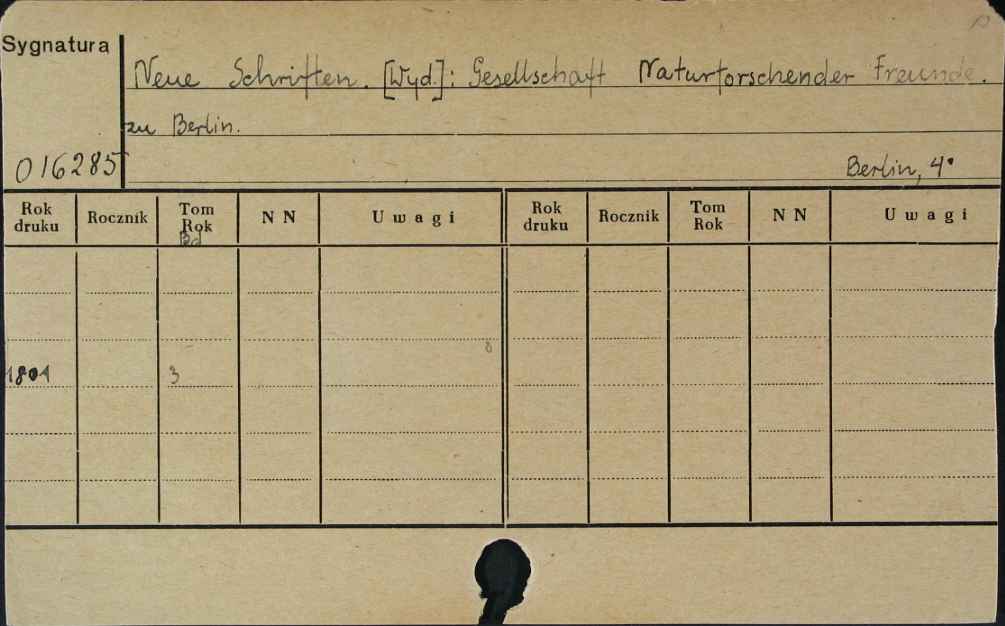 Sygnatura
Neue Schriften. [Wyd.]: Gesellschaft Naturforschender Freunde.
zu Berlin.
016285
Berlin, 4°
Rok druku Rocznik Tom Rok Bd NN Uwagi Rok druku Rocznik Tom Rok NN Uwagi
1801 3